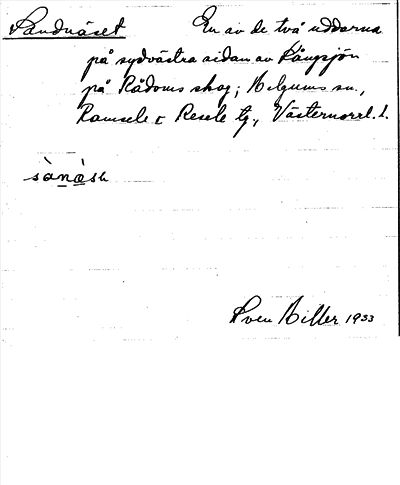 Sandnäset En av de två uddarna
på sydvästra sidan av Långsjön
på Rådoms skog; Helgums sn.,
Ramsele o Resele tg., Västernorrl. l.
sànǝ̀sh
Sven Hiller 1933